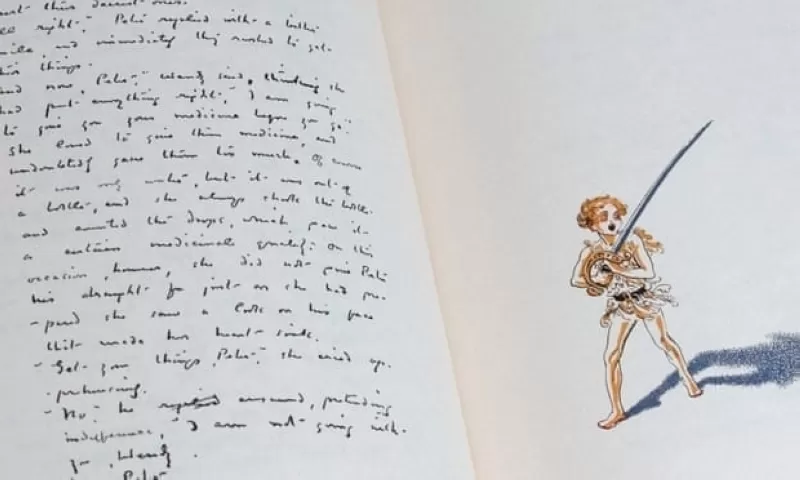 all right," Peter replied with a bitter
smile, and immediately they rushed to get
their things.
"And now, Peter," Wendy said, thinking she
had put everything right, "I am going
to give you your medicine before you go."
She loved to give them medicine, and
undoubtedly gave them too much. Of course
it was only water, but it was out of
a bottle, and she always shook the bottle
and counted the drops, which gave it
a certain medicinal quality. On this
occasion, however, she did not give Peter
his draught for just as she had pre-
-pared she saw a look on his face
that made her heart sink.
"Get your things, Peter," she cried
"No," he answered, pretending
indifference, "I am not going with
you, Wendy.
Peter